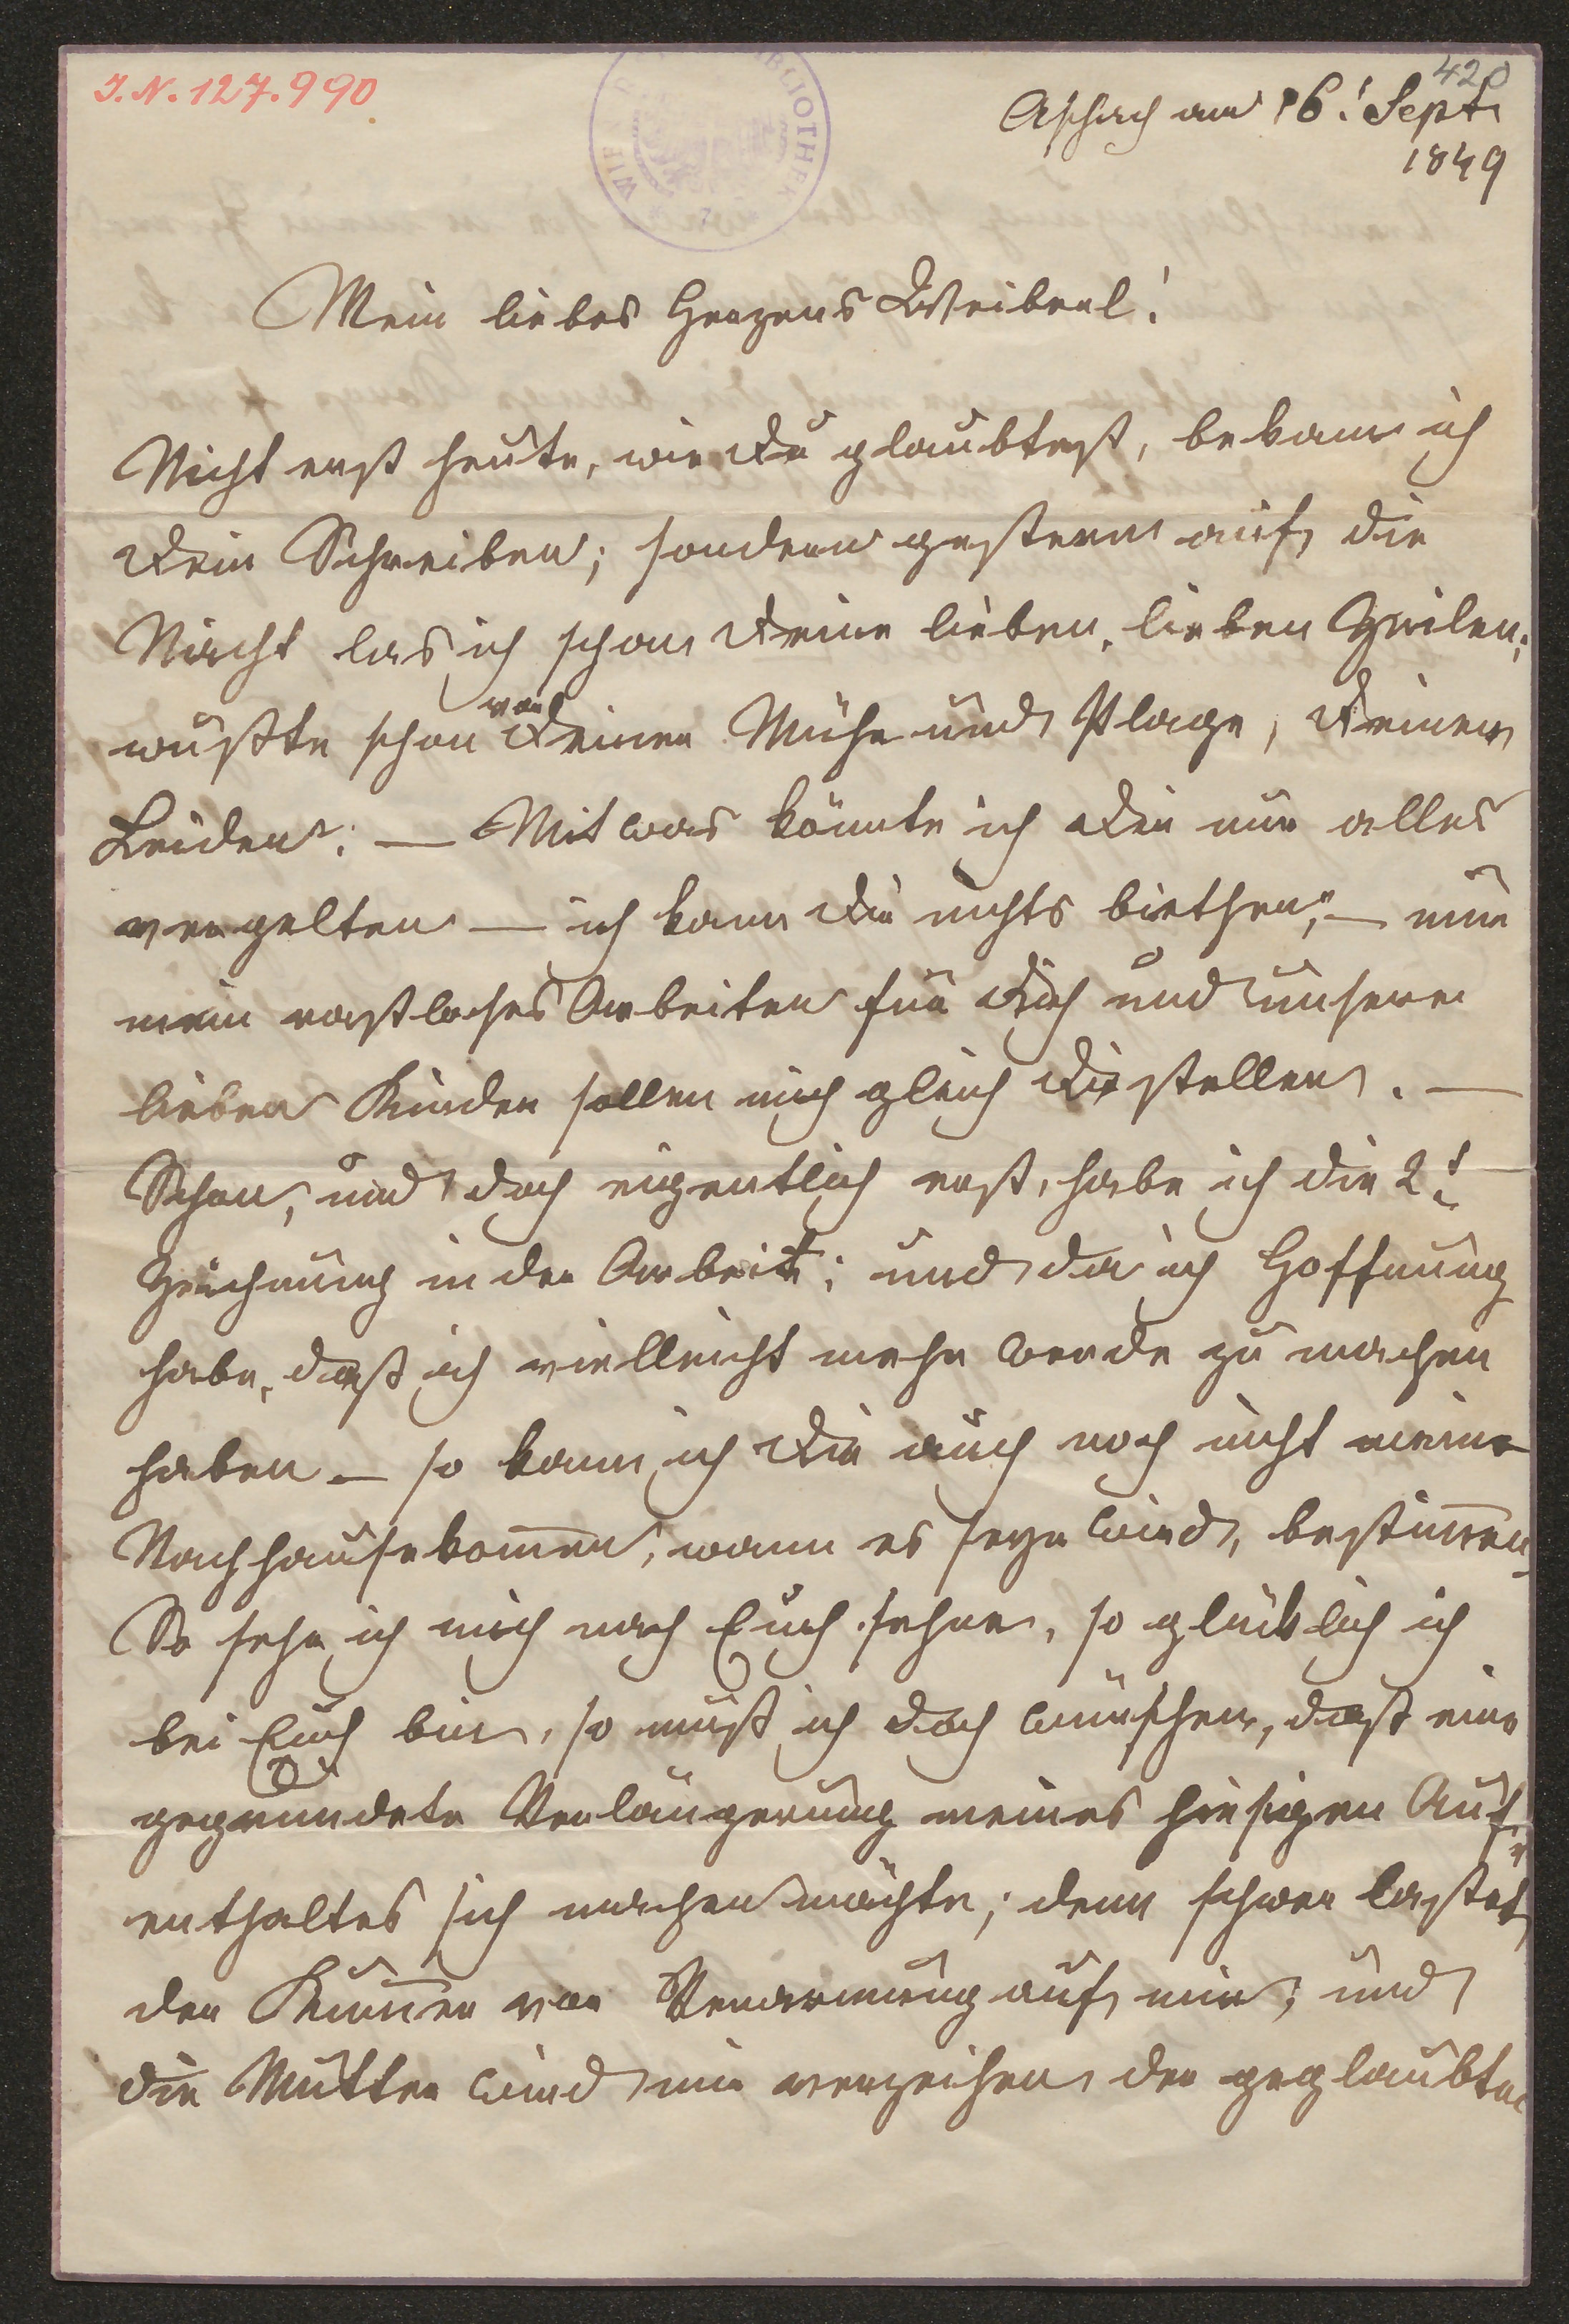 I. N. 127.990
420
Aschach am 16t Sept
1849
Mein liebes Herzens Weiberl!
Nicht erst heute, wie Du glaubtest, bekam ich
Dein Schreiben; sondern gestern auf die
Nacht las ich schon Deine lieben, lieben Zeilen;
wußte schon von Deiner Mühe und Plage, Deinen
Leiden. — Mit was könnte ich Dir nur alles
vergelten — ich kann Dir nichts biethen; — nur
mein rastloses Arbeiten für Dich und unsere
lieben Kinder sollen mich gleich Dir stellen. —
Schon, und doch eigentlich erst, habe ich die 2t
Zeichnung in der Arbeit; und da ich Hoffnung
habe, daß ich vielleicht mehr werde zu machen
haben — so kann ich Dir auch noch nicht meine
Nachhausekom̄en, wann es seyn wird, bestim̄en.
So sehr ich mich nach Euch sehne, so glücklich ich
bei Euch bin, so muß ich doch wünschen, daß eine
gegründete Verlängerung meines hiesigen Auf-
enthaltes sich machen möchte; denn schwer lastet
der Kum̄er von Verarmung auf mir; und
die Mutter wird mir verzeihen der geglaubten